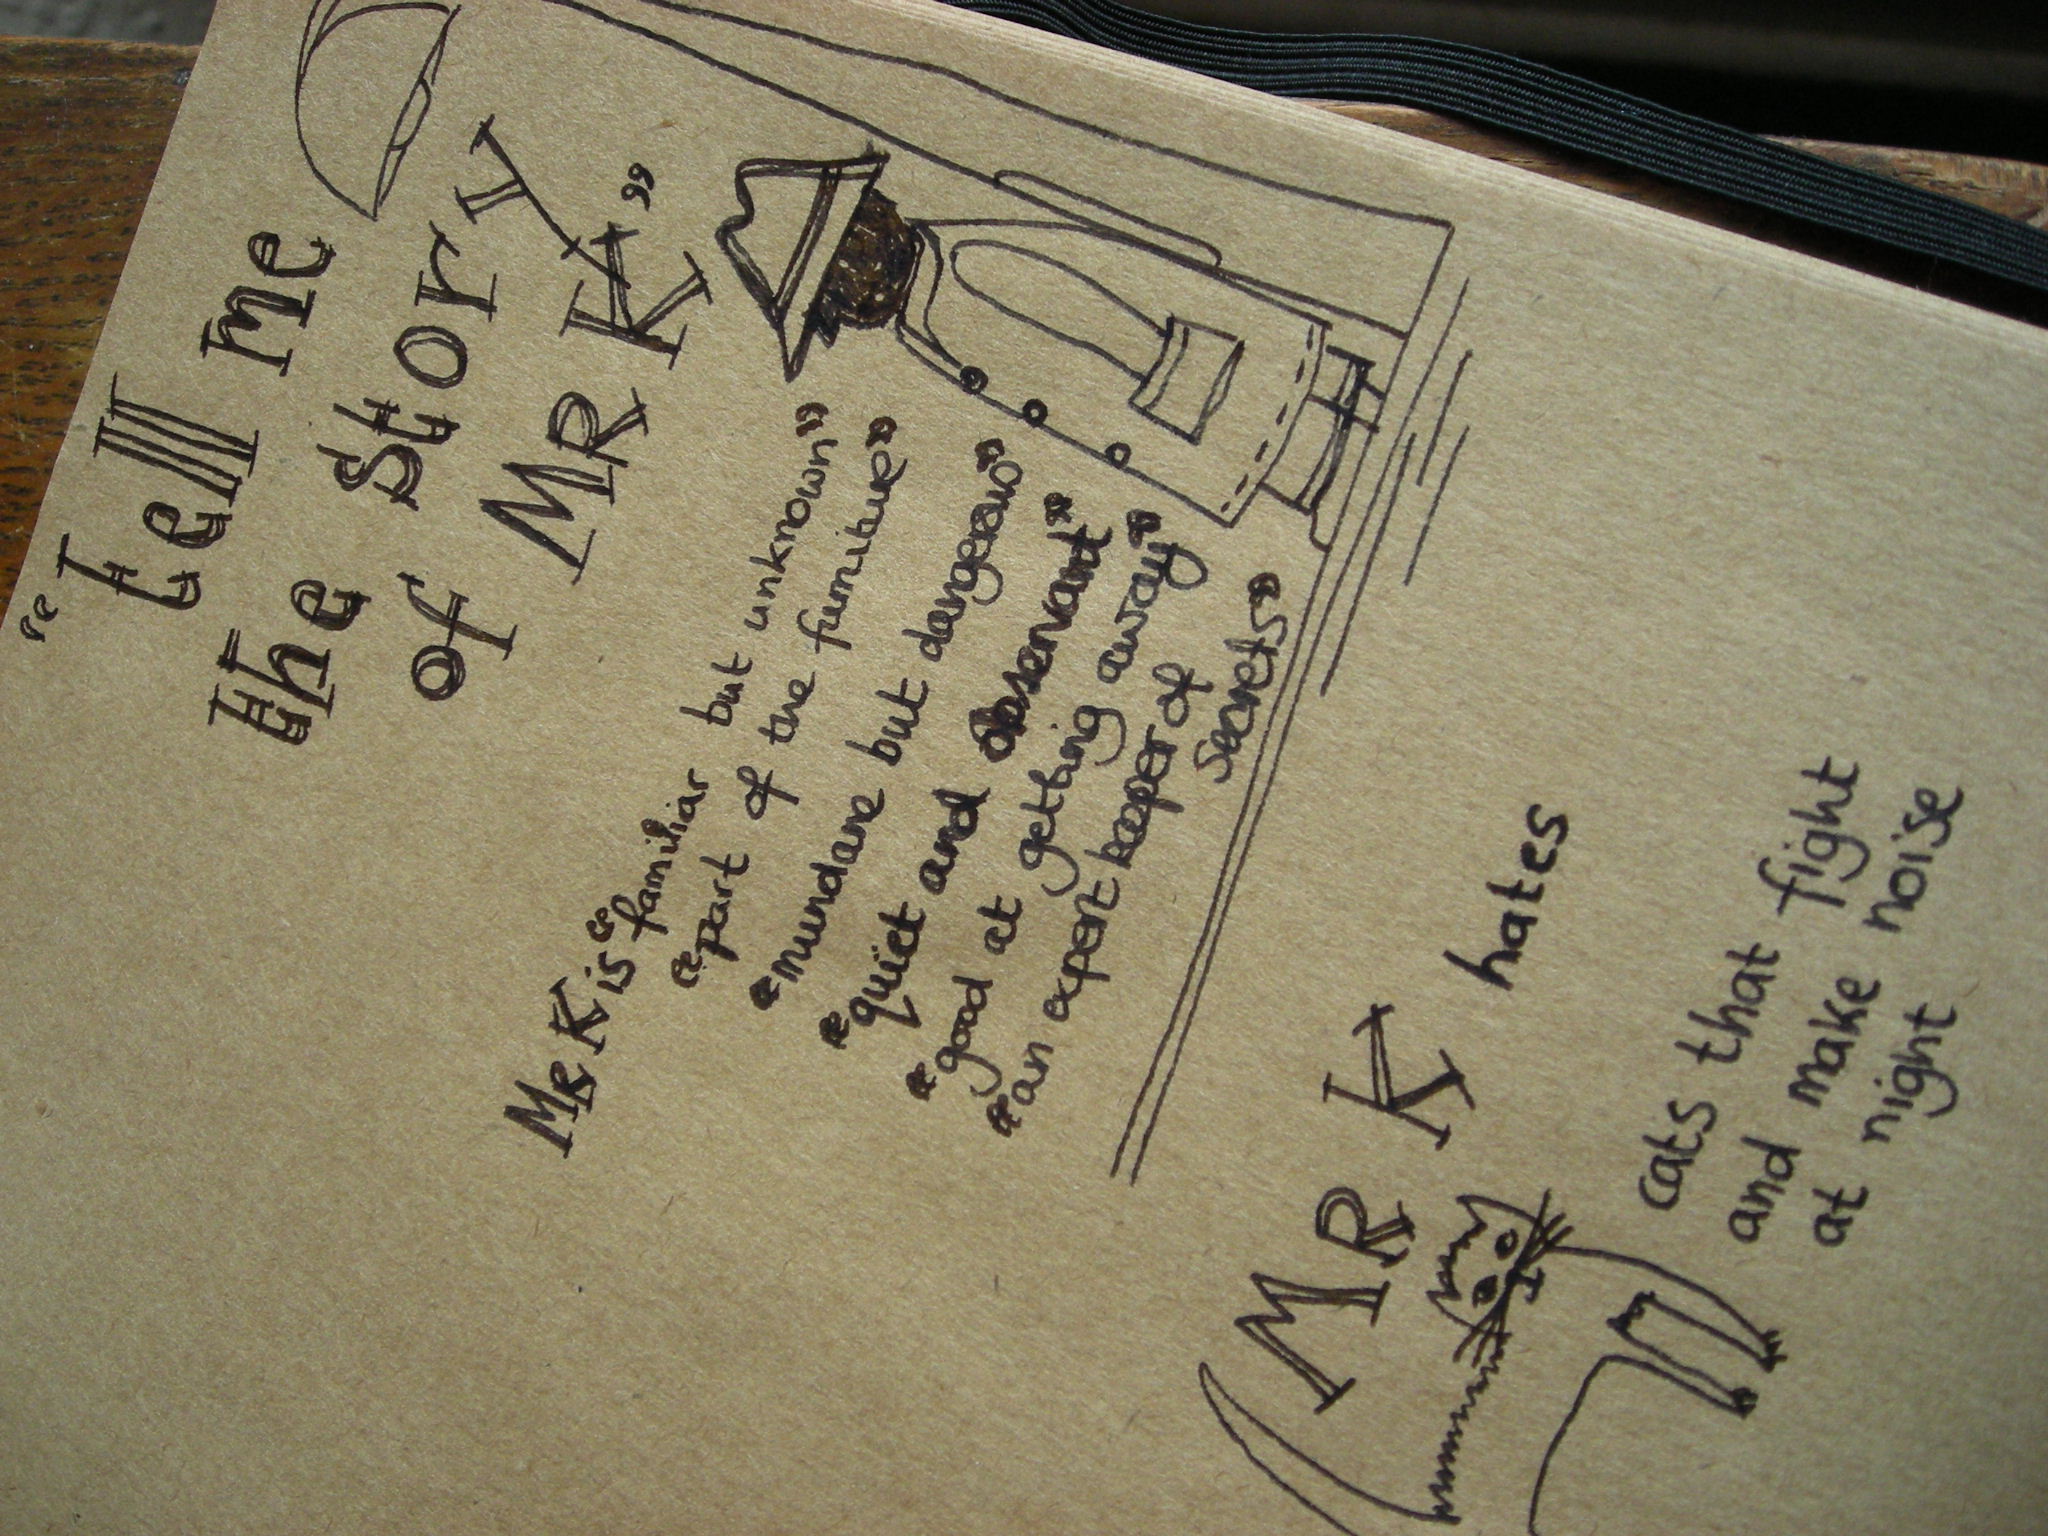 “tell me
the story
of MR K”
MR K is “familiar but unknown”
“part of the furniture”
“mundane but dangerous”
“quiet and observant”
“good at getting away”
“an expert keeper of
secrets”
MR K hates
cats that fight
and make noise
at night